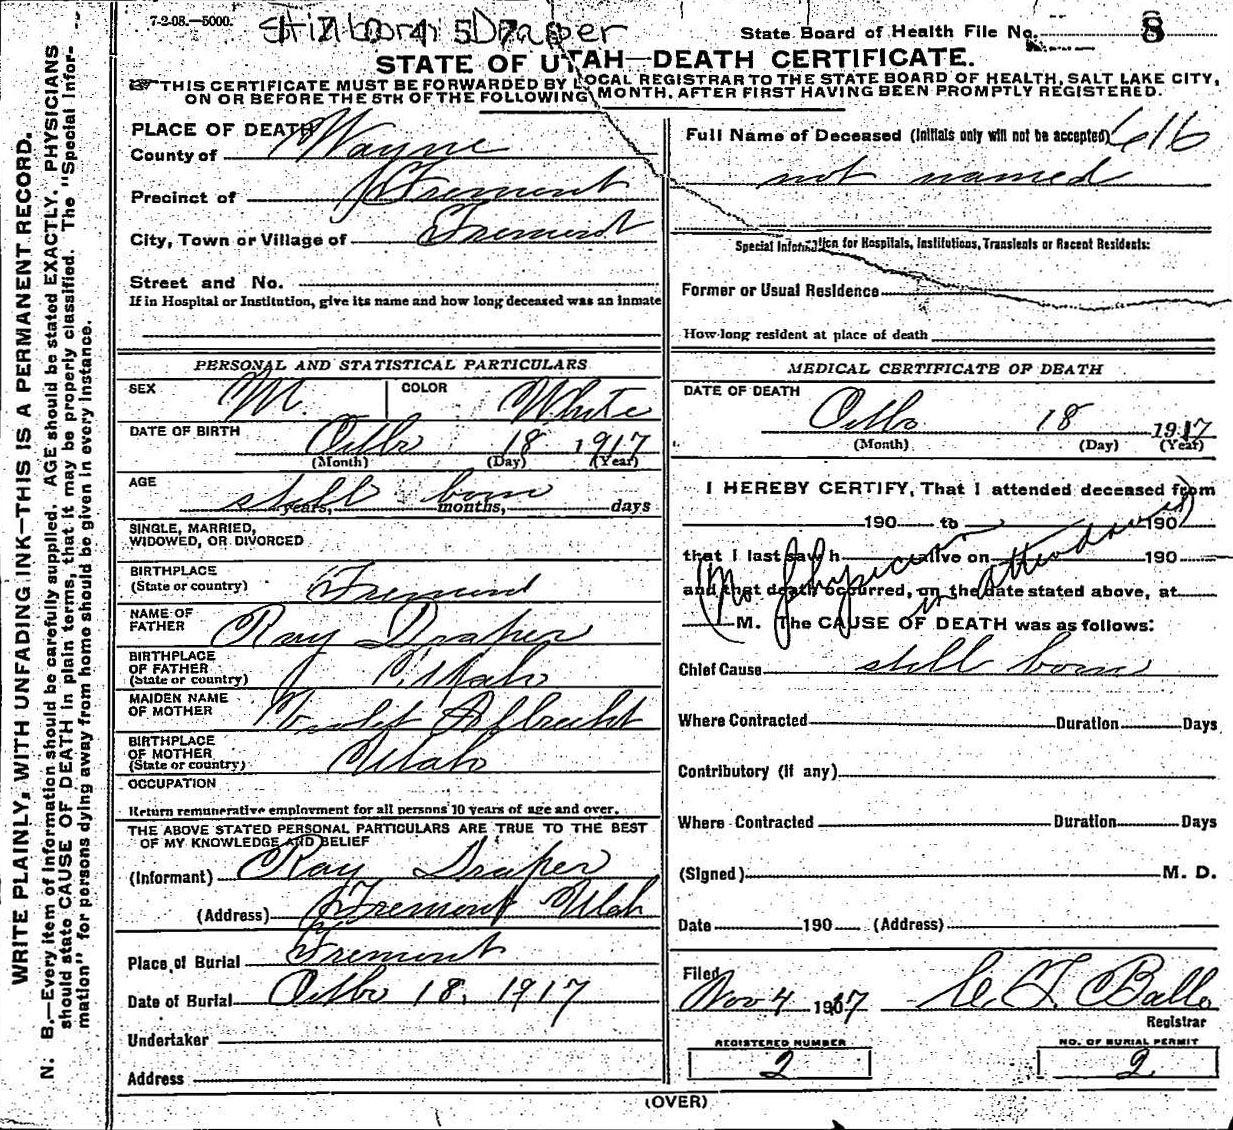 7-2-08.—5000.
Stillborn Draper
State Board of Health File No. 8
STATE OF UTAH—DEATH CERTIFICATE.
THIS CERTIFICATE MUST BE FORWARDED BY LOCAL REGISTRAR TO THE STATE BOARD OF HEALTH, SALT LAKE CITY,
ON OR BEFORE THE 5TH OF THE FOLLOWING MONTH, AFTER FIRST HAVING BEEN PROMPTLY REGISTERED.
WRITE PLAINLY, WITH UNFADING INK—THIS IS A PERMANENT RECORD.
N. B.—Every item of information should be carefully supplied. AGE should be stated EXACTLY. PHYSICIANS
should state CAUSE OF DEATH in plain terms, that it may be properly classified. The "Special Infor-
mation" for persons dying away from home should be given in every instance.
PLACE OF DEATH
County of Wayne
Precinct of Fremont
City, Town or Village of Fremont
Street and No.
If in Hospital or Institution, give its name and how long deceased was an inmate
PERSONAL AND STATISTICAL PARTICULARS
SEX M. COLOR White
DATE OF BIRTH Octbo 18 1917
(Month) (Day) (Year)
AGE still born
years, months, days
SINGLE, MARRIED,
WIDOWED, OR DIVORCED
BIRTHPLACE
(State or country) Fremont
NAME OF
FATHER Ray Draper
BIRTHPLACE
OF FATHER
(State or country) Utah
MAIDEN NAME
OF MOTHER Violet Albrecht
BIRTHPLACE
OF MOTHER
(State or country) Utah
OCCUPATION
Return remunerative employment for all persons 10 years of age and over.
THE ABOVE STATED PERSONAL PARTICULARS ARE TRUE TO THE BEST
OF MY KNOWLEDGE AND BELIEF
(Informant) Ray Draper
(Address) Fremont Utah
Place of Burial Fremont
Date of Burial Octbo 18, 1917
Undertaker
Address
Full Name of Deceased (Initials only will not be accepted) 616
not named
Special Information for Hospitals, Institutions, Transients or Recent Residents:
Former or Usual Residence
How long resident at place of death
MEDICAL CERTIFICATE OF DEATH
DATE OF DEATH Octbo 18 1917
(Month) (Day) (Year)
I HEREBY CERTIFY, That I attended deceased from
190 to 190
that I last saw h alive on 190
and that death occurred, on the date stated above, at
M. The CAUSE OF DEATH was as follows:
(No physician in attendance)
Chief Cause still born
Where Contracted Duration Days
Contributory (if any)
Where Contracted Duration Days
(Signed) M. D.
Date 190 (Address)
Filed
Nov 4 1917
Registrar
REGISTERED NUMBER
2
NO. OF BURIAL PERMIT
2
(OVER)